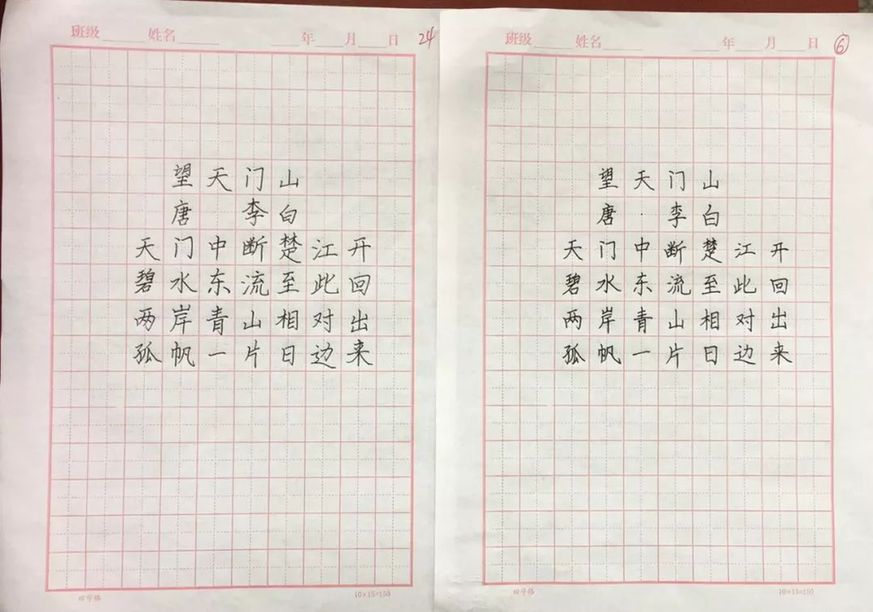 班级 姓名 年 月 日 24
望天门山
唐 李白
天门中断楚江开
碧水东流至此回
两岸青山相对出
孤帆一片日边来
田字格 10×15=150
班级 姓名 年 月 日 6
望天门山
唐·李白
天门中断楚江开
碧水东流至此回
两岸青山相对出
孤帆一片日边来
田字格 10×15=150